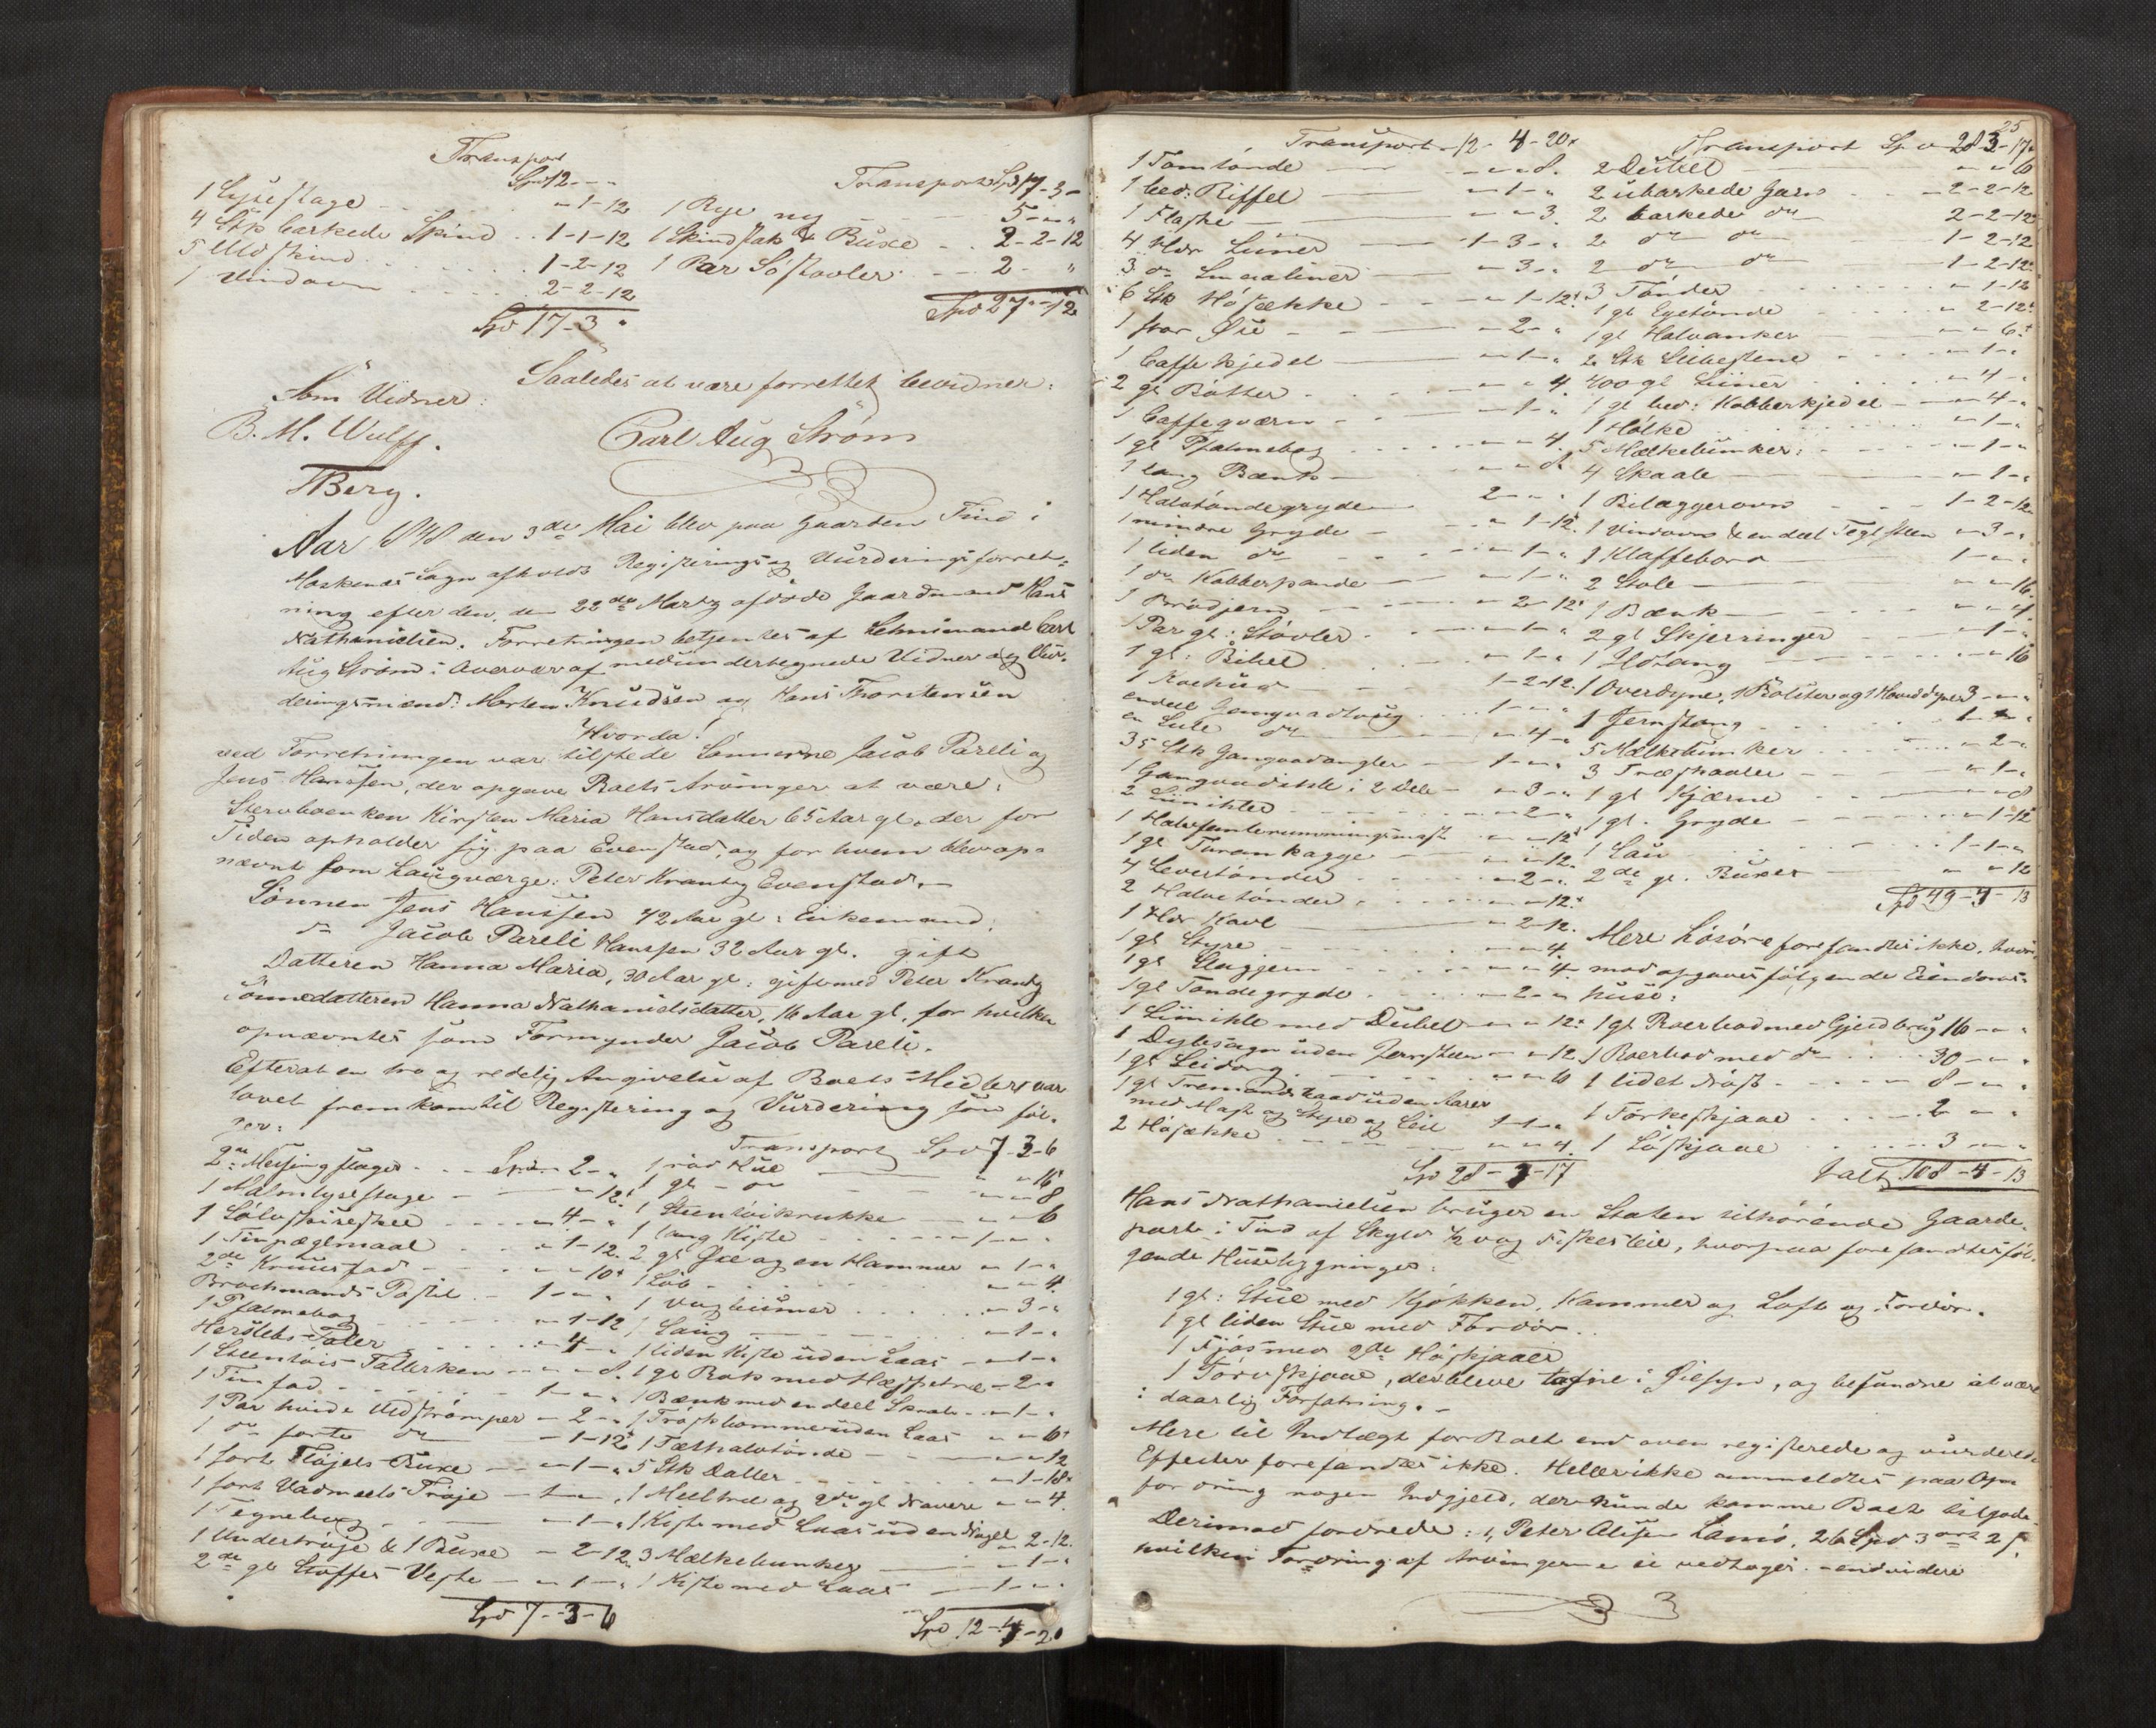 Transport
Spd 12 - " -
1 Lysestage - - - " - 1 - 12
4 Stk barkede Skind - - 1 - 1 - 12
5 Uldskind - - - 1 - 2 - 12
1 Vindovn - - - 2 - 2 - 12
Spd 17 - 3 "
Transport Spd 17 - 3 -
1 Rye ny - - 5 - " - "
1 Skindstak & Buxe - - 2 - 2 - 12
1 Par Söstøvler - - - 2 - "
Spd 27 " - 12
Saaledes at være forrettet bevidner:
Som Vidner:
B. M. Wulff.
Carl Aug Strøm
Berg.
Aar 1848 den 3de Mai blev paa Gaarden Tind i
Moskenes Sogn afholdt Registerings og Vurderingsforret-
ning efter den, den 22de Martz afdøde Gaardmand Hans
Nathanielsen. Forretningen betjentes af Lehnsmand Carl
Aug Strøm i Overvær af medundertegnede Vidner og Vur-
deringsmænd: Morten Knudsen og Hans Thorstensen
Hvorda!
ved Forretningen var tilstede Sønnerne Jacob Pareli og
Jens Hanssen, der opgave Boets Arvinger at være:
Stervboenken Kirsten Maria Hansdatter 65 Aar gl. der for
Tiden opholder sig paa Evenstad, og for hvem blev op-
nævnt som Laugværge: Peter Krantz Evenstad. -
Sønnen Jens Hanssen 42 Aar gl: Enkemand.
do Jacob Pareli Hanssen 32 Aar gl. gift
Datteren Hanna Maria, 30 Aar gl: gift med Peter Krantz
Sønnedatteren Hanna Nathanielsdatter, 16 Aar gl. for hvilken
opnævntes som Formynder Jacob Pareli.
Efterat en tro og redelig Angivelse af Boets Midler var
lovet fremkom til Registering og Vurdering som føl-
ger:
2de Messingstager - - Spd " 2 - "
1 Malmlysestage - - - " 12
1 Sølvskeeskee - - - 4 - "
1 Tinpæglmaal - - " - 1 - 12
2de Kruusfad - - - " 10
Brochmands Postil - 1 - " - "
1 Psalmebog - - - 1 - 12
Herslebs Taler - - - 4 - "
1 Steentøis Tallerken - - " - 8
1 Tinfad - - - 1 - "
1 Par hvide Uldstrømper - 2 - "
1 do sorte do - 1 - 12
1 sort Fløjels Buxe - - 1 - "
1 sort Vadmels Trøje - 1 - "
1 Tegnebog - - - 1 - "
1 Undertrøje & 1 Buxe - 2 - 12
2de gl Stoffes Veste - " - 1 - "
Spd 7 - 3 - 6
Transport Spd 7 - 3 - 6
1 rød Hue - - " - 16
1 gl - do - - - " - 8
1 Steentøikrukke - - " - 6
1 lang Kiste - - - 1 - "
2 gl Øxe og en Hammer - 1 - "
1 Lob - - - " - 4
1 Vogbismer - - - 3 - "
1 Laug - - - " - 1 - "
1 liden Kiste uden Laas - " 1 - "
1 gl Rok med Hæspetræ - 2 -
1 Bænk med en deel Skrab - " 1 - "
1 uden Laas - " - 6
1 Tæthalvtønde - - - " - 12
5 Stk Daller - - - 1 - 18
1 Meeltrue og 2de gl Navere - " - 4
1 Kiste med Laas uden Nøgel 2 - 12
3 Mælkebunker - - - 1 - "
1 Kiste med Laas - - 1 - " - "
Spd 12 - 4 - 20
25
Transport - 12 - 4 - 20
1 Tomtønde - - - " - 8
1 bed: Riffel - - " - 1 - "
1 Flaske - - " - " 3
4 Hdr Liiner - - 1 - 3 - "
3 do Smaaliner - - " - 3 - "
6 Stk Høsække - - - 1 - 12
1 stor Øxe - - - 2 - "
1 Caffekjedel - - - 1 - "
2 gl Bøtter - - - " - 4
1 Caffeqværn - - - 1 - "
1 gl Psalmebog - - - " - 4
1 lang Bænk - - - " - 8
1 Halvtøndegryde - - 2 - "
1 mindre Gryde - - - 1 - 12
1 liden do - - - 1 - "
1 do Kobberpande - - - 1 - "
1 Brødjern - - - 2 - 12
1 Par gl: Støvler - - - 1 - "
1 gl: Bibel - - - 1 - "
1 Roehuus - - - 1 - 2 - 12
endeel Gangvadtoug - - 1 - " - "
en Lute do - - - 4 - "
35 Stk Gangvadangler - - 1 - " - "
1 i 2 Dele - " 3 - "
2 Liinikler - - - 2 - "
1 - - " 12
1 gl Tarankagge - - " - 12
4 Levertønder - - - 2 - "
2 Halvetønder - - - " 12
1 Hdr Kavl - - - 2 - 12
1 gl Styre - - - " - 4
1 gl Slagjern - - - " - 4
1 gl Tøndegryde - - 2 - "
1 Liinikle med Dubel - - " 12
1 Dybsagn uden Jernsteen - - " 12
1 gl Leidong - - - " - 6
1 gl Tremandsbaad uden Aarer
med Mast og Styre og Seil 1 - 1 - "
2 Høsække - - - " - 4
Spd 28 - 3 - 17
Transport Spd 28 3 - 17
2 Dubel - - - " - 6
2 ubarkede Garn - - 2 - 2 - 12
2 barkede do - - 2 - 2 - 12
2 do do - - 1 - 2 - 12
2 do do - - 1 - 2 - 12
3 Tønder - - - 1 - 12
1 gl Egetønde - - - 2 - 12
1 gl Halvanker - - - " - 6
2 Stk Slibestene - - - 1 - "
400 gl Liiner - - - 4 - "
1 gl bed: Kobberkjedel - - 4 - "
1 Holke - - - 1 - "
5 Mælkebunker: - - - 1 - "
4 Skaale - - - 1 - "
1 Bilæggerovn - - 1 - 2 - 12
1 Vindovn & en deel Teglsteen - 3 - "
1 Klaffebord - - 1 - " - "
2 Stole - - - " - 16
1 Bænk - - - " - 4
2 gl Skjerringer - - - 1 - "
1 Ildtang - - - " - 16
1 Overdyne, 1 Bolster og 1 Hoveddyne 3 - " - "
1 Jernstang - - - 1 - "
5 Mælkebunker - - - 2 - "
3 Træskaaler - - - 1 - "
1 gl Kjærne - - - " - 8
1 gl. Gryde - - - 1 - 12
1 Sau - - - 1 - 1 - "
2de gl. Buxer - - - " - 12
Spd 49 - 4 - 13
Mere Løsøre forefandtes ikke, hvor-
mod opgaves følgende Eiendoms-
huse:
1 gl Roerbod med Gjeldbrug 16 - " - "
1 Roerbod med do - - 30 - " - "
1 lidet Nøst - - - 8 - " - "
1 Tørkeskjaae - - - 2 " - "
1 Løskjaae - - - 3 - " - "
Ialt 108 - 4 - 13
Hans Nathanielsen bruger en Staten tilhørende Gaarde-
part i Tind af Skyld ½ Vog Fiskesleie, hvorpaa forefandtes føl-
gende Husebygninger:
1 gl: Stue med Kjøkken, Kammer og Loft og Fordør.
1 gl liden Stue med Fordør.
1 Fjøs med 2de Høskjaaer
1 Torvskjaae, der bleve tagne i Øiesyn, og befundne at være
i daarlig Forfatning. -
Mere til Indtægt for Boet end oven registerede og vurderede
Effecter forefandtes ikke. Heller ikke anmeldtes paa Op-
fordring nogen Indgjeld, der kunde komme Boet tilgode.
Derimod fordrede: 1, Peter Olssen Sanø, 26 Spd 3 ort 2 s.
hvilken Fordring af Arvingerne ei vedtoges. - endvidere